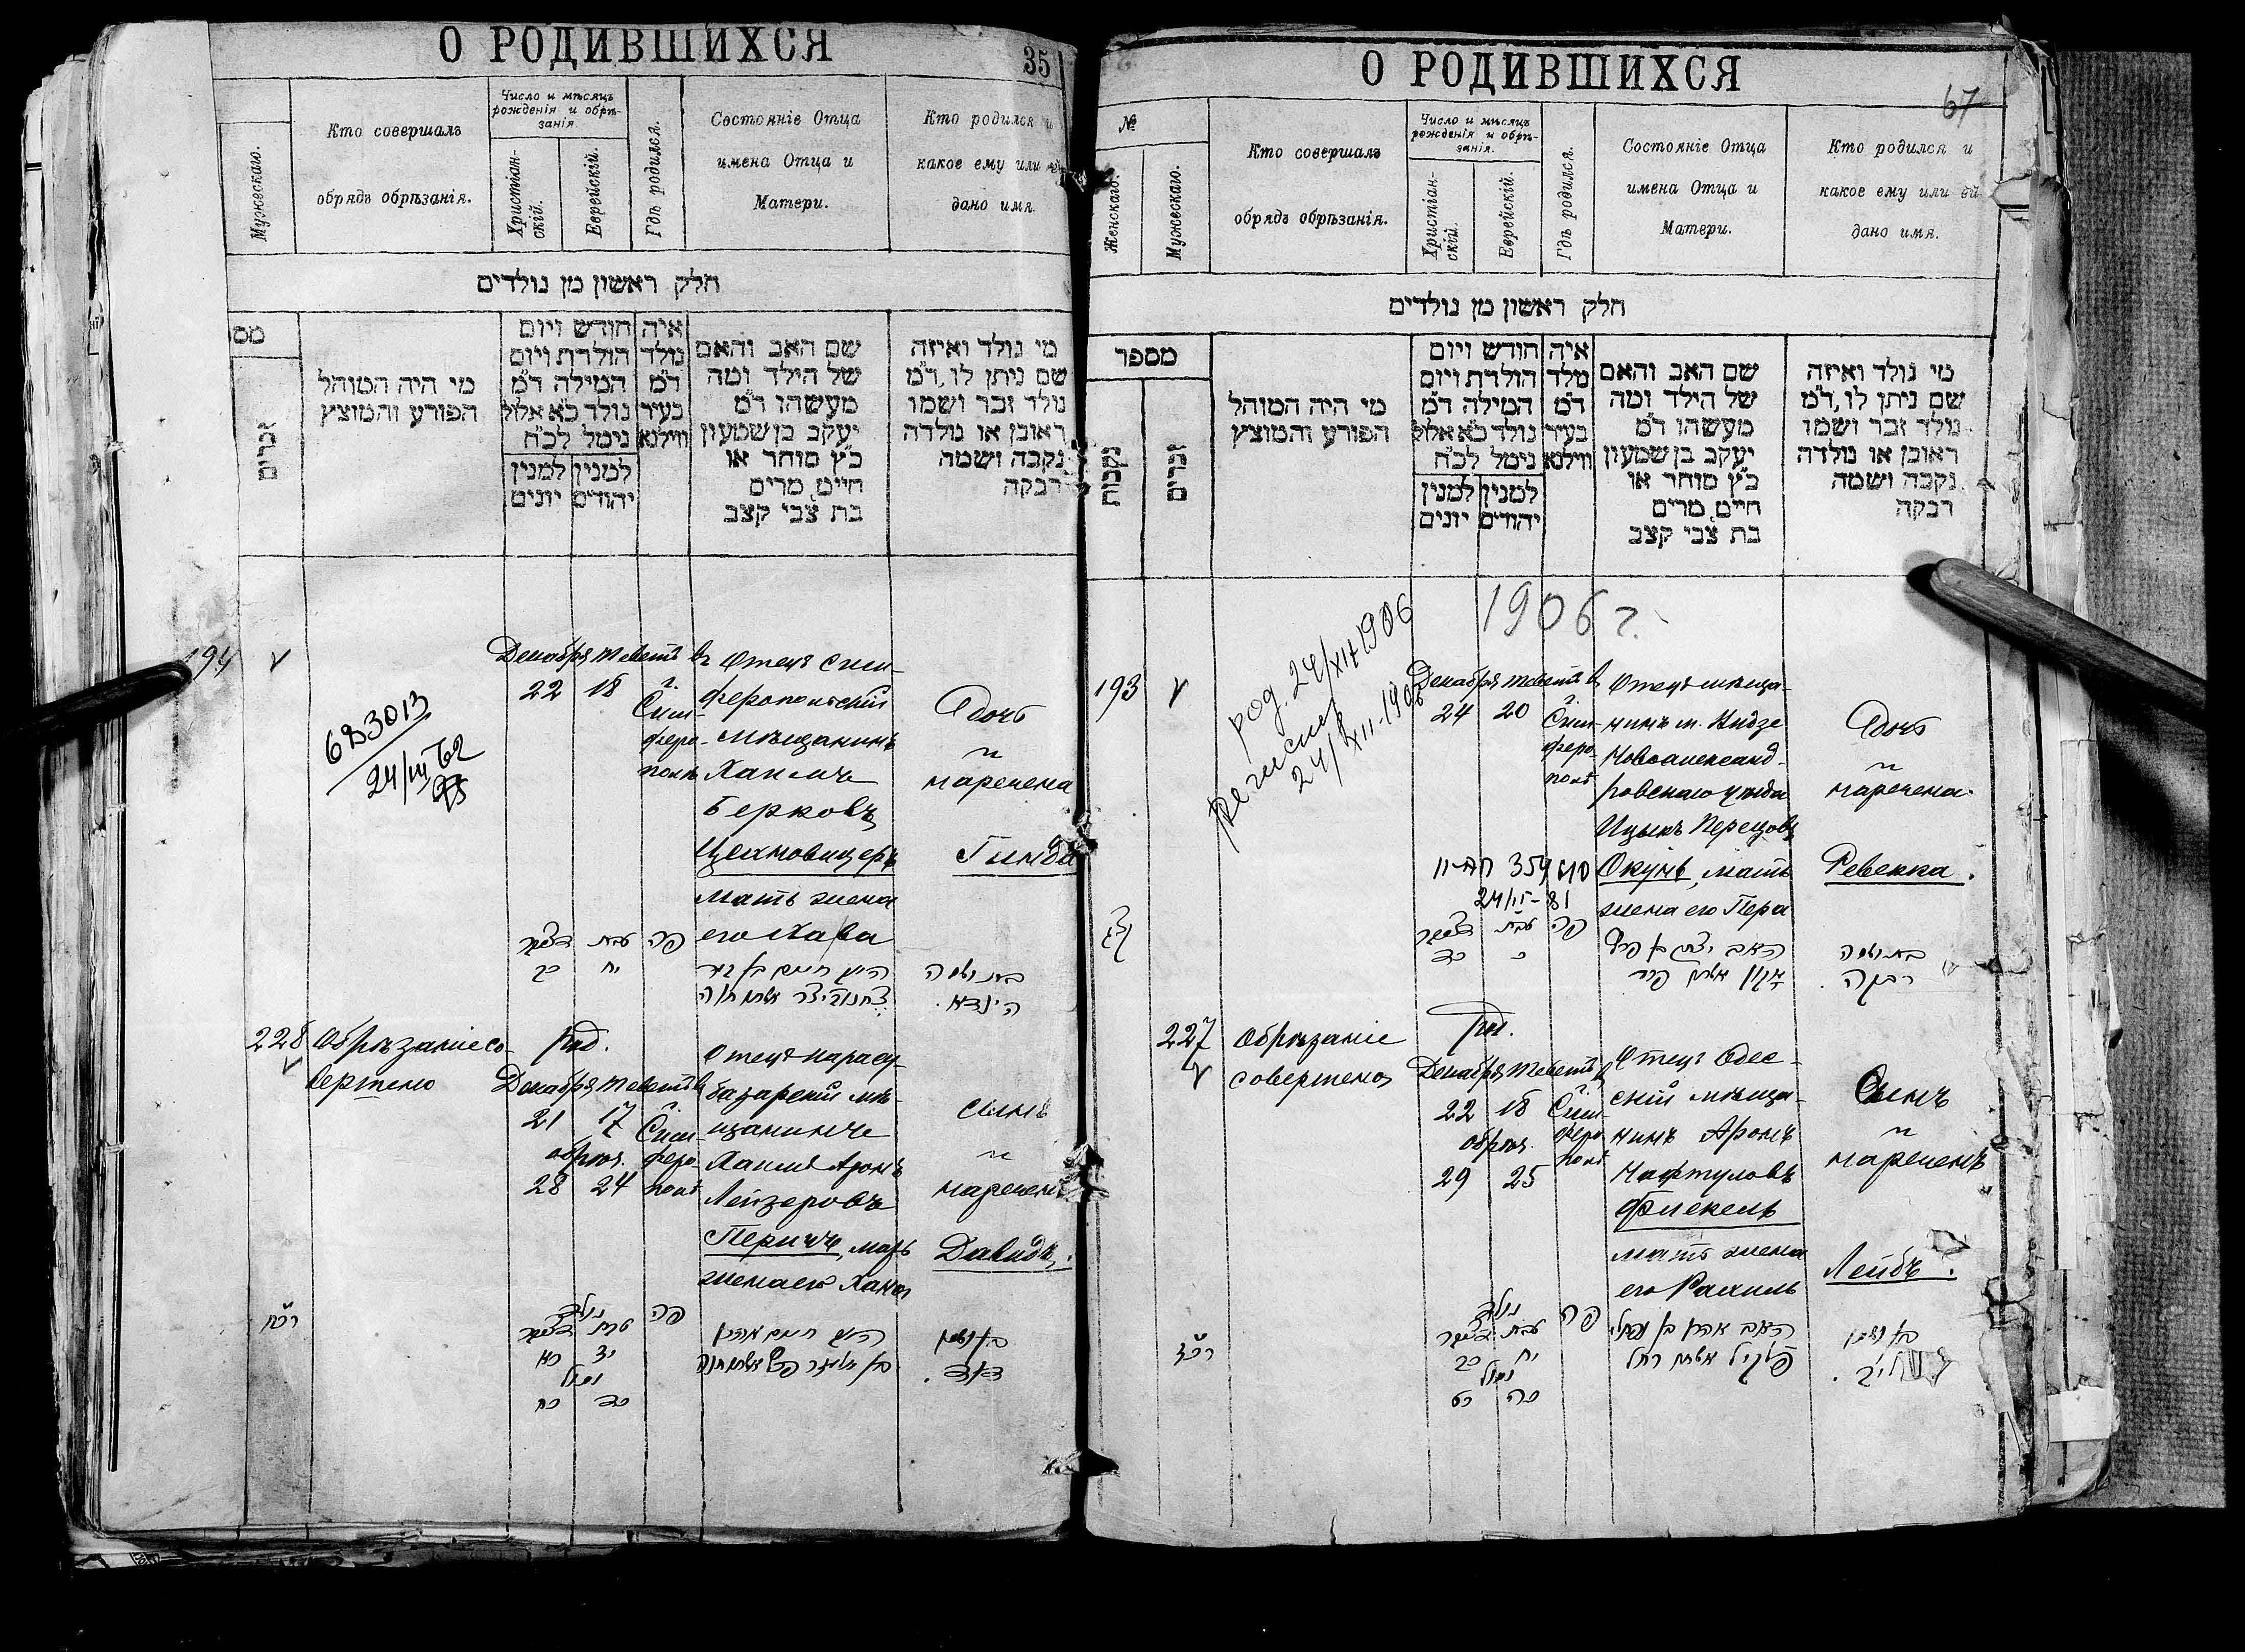 О РОДИВШИХСЯ
35
Мужескаго.
Кто совершалъ
обрядъ обрѣзанія.
Число и мѣсяцъ
рожденія и обрѣ-
занія
Христіан-
скій.
Еврейскій.
Гдѣ родился.
Состояніе Отца
имена Отца и
Матери.
Кто родился и
какое ему или
дано имя
חלק ראשון מן נולדים
מס
זכרים
מי היה המוהל
הפורע והמוצץ
חודש ויום
הולדת ויום
המילה ד"מ
נולד כ"א אלול
נימל לכ"ח
למנין למנין
יהודים יונים
איה
נולד
ד"מ
בעיר
ווילנא
שם האב והאם
של הילד ומה
מעשהו ד"מ
יעקב בן שמעון
כ"ץ סוחר או
חיים, מרים
בת צבי קצב
מי נולד ואיזה
שם ניתן לו, ד"מ
נולד זכר ושמו
ראובן או נולדה
נקבה ושמה
רבקה
194
683013
24/III 62
Декабря Теветъ въ
22 18 г.
Сим-
феро-
полѣ
Отецъ Сим-
феропольскій
мѣщанинъ
Хаимъ
Берковъ
Цехновицеръ
мать жена
его Хава
Дочь
наречена
Гинда
דעקאב טבת פה
כב יח
228
Обрѣзаніе со-
вершено
род.
Декабря Теветъ въ
21 17 г.
Сим-
обрѣз. феро-
28 24 полѣ
Отецъ Карасу-
базарскій мѣ-
щанинъ
Хаимъ Аронъ
Лейзеровъ
Перичъ, мать
жена его Хана
Сынъ
нареченъ
Давидъ.
נולד
טבת פה
יז כא
נימול
כד כח
О РОДИВШИХСЯ
67
№
Женскаго.
Мужескаго.
Кто совершалъ
обрядъ обрѣзанія.
Число и мѣсяцъ
рожденія и обрѣ-
занія.
Христіан-
скій.
Еврейскій.
Гдѣ родился.
Состояніе Отца
имена Отца и
Матери.
Кто родился и
какое ему или ей
дано имя.
חלק ראשון מן נולדים
מספר
נקבות
זכרים
מי היה המוהל
הפורע והמוצץ
חודש ויום
הולדת ויום
המילה ד"מ
נולד כ"א אלול
נימל לכ"ח
למנין למנין
יהודים יונים
איה
נולד
ד"מ
בעיר
ווילנא
שם האב והאם
של הילד ומה
מעשהו ד"מ
יעקב בן שמעון
כ"ץ סוחר או
חיים, מרים
בת צבי קצב
מי נולד ואיזה
שם ניתן לו, ד"מ
נולד זכר ושמו
ראובן או נולדה
נקבה ושמה
רבקה
1906 г.
193
род. 24/XII 1906
24/XII-1906
Декабря Теветъ въ
24 20 г.
Сим-
феро-
полѣ
II-АП 354610
24/II-81
Отецъ мѣща-
нинъ м. Видзе
Новоалександ-
ровскаго уѣзда
Ицыкъ Перецовъ
Окунь, мать
жена его Пера
Дочь
наречена
Ревекка.
טבת פה
כד כ
האב יצחק בן פרץ
אקון אשתו פיר
בת ושמה
רבקה.
227
Обрѣзаніе
совершено
род.
Декабря Теветъ въ
22 18 г.
Сим-
обрѣз. феро-
29 25 полѣ
Отецъ Одес-
скій мѣща-
нинъ Аронъ
Нафтуловъ
Флекель
мать жена
его Рахиль
Сынъ
нареченъ
Лейбъ.
נולד
טבת פה
כב יח
נימול
כט כה
האב אהרן בן נפתלי
פלעקיל אשתו רחל
בן ושמו